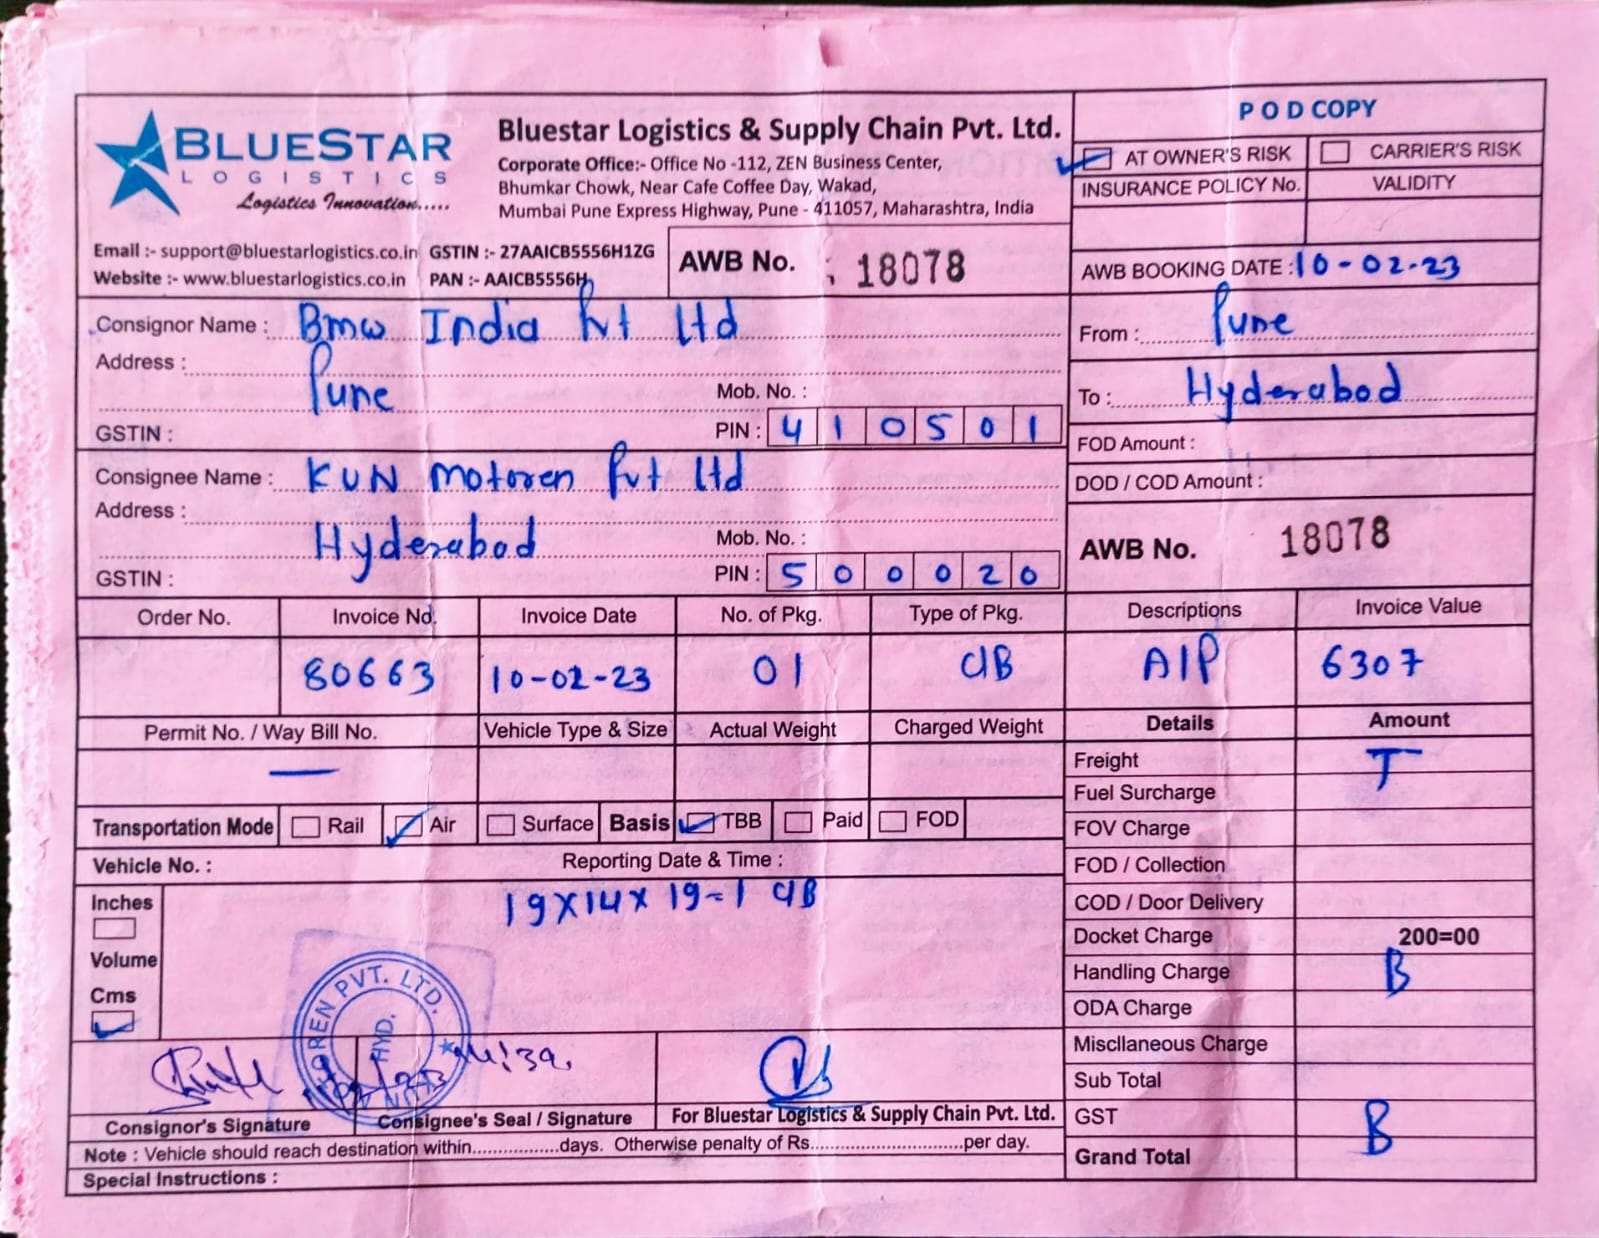 BLUESTAR
LOGISTICS
Logistics Innovation.....
Bluestar Logistics & Supply Chain Pvt. Ltd.
Corporate Office:- Office No -112, ZEN Business Center,
Bhumkar Chowk, Near Cafe Coffee Day, Wakad,
Mumbai Pune Express Highway, Pune - 411057, Maharashtra, India
Email :- support@bluestarlogistics.co.in GSTIN :- 27AAICB5556H1ZG
Website :- www.bluestarlogistics.co.in PAN :- AAICB5556H
AWB No. 18078
POD COPY
AT OWNER'S RISK CARRIER'S RISK
INSURANCE POLICY No. VALIDITY
AWB BOOKING DATE : 10-02-23
Consignor Name : Bmw India Pvt Ltd
Address :
Pune
Mob. No. :
GSTIN : PIN : 410501
From : Pune
To : Hyderabad
FOD Amount :
DOD / COD Amount :
Consignee Name : KUN Motoren Pvt Ltd
Address :
Hyderabad
Mob. No. :
GSTIN : PIN : 500020
AWB No. 18078
Order No. Invoice No. Invoice Date No. of Pkg. Type of Pkg. Descriptions Invoice Value
80663 10-02-23 01 C/B A/P 6307
Permit No. / Way Bill No. Vehicle Type & Size Actual Weight Charged Weight
—
Transportation Mode Rail Air Surface Basis TBB Paid FOD
Vehicle No. : Reporting Date & Time :
Inches
Volume
Cms
19x14x19=1 C/B
Details Amount
Freight T
Fuel Surcharge
FOV Charge
FOD / Collection
COD / Door Delivery
Docket Charge 200=00
Handling Charge B
ODA Charge
Miscllaneous Charge
Sub Total
GST B
Grand Total
OREN PVT. LTD.
HYD.
Consignor's Signature Consignee's Seal / Signature For Bluestar Logistics & Supply Chain Pvt. Ltd.
Note : Vehicle should reach destination within.................days. Otherwise penalty of Rs..............................per day.
Special Instructions :